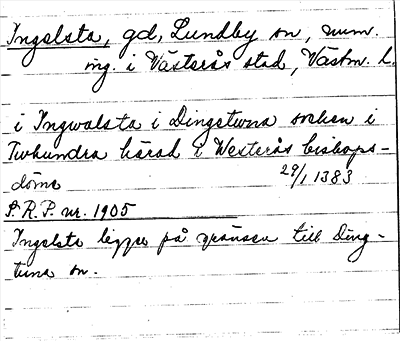 Ingelsta, gd, Lundby sn, num.
ing. i Västerås stad, Västm. l.
i Ingwalsta i Dingstwna soken i
Twhundra härad i Westerås biskops-
döme 29/1 1383
S.R.P. nr. 1905
Ingelsta ligger på gränsen till Ding-
tuna sn.